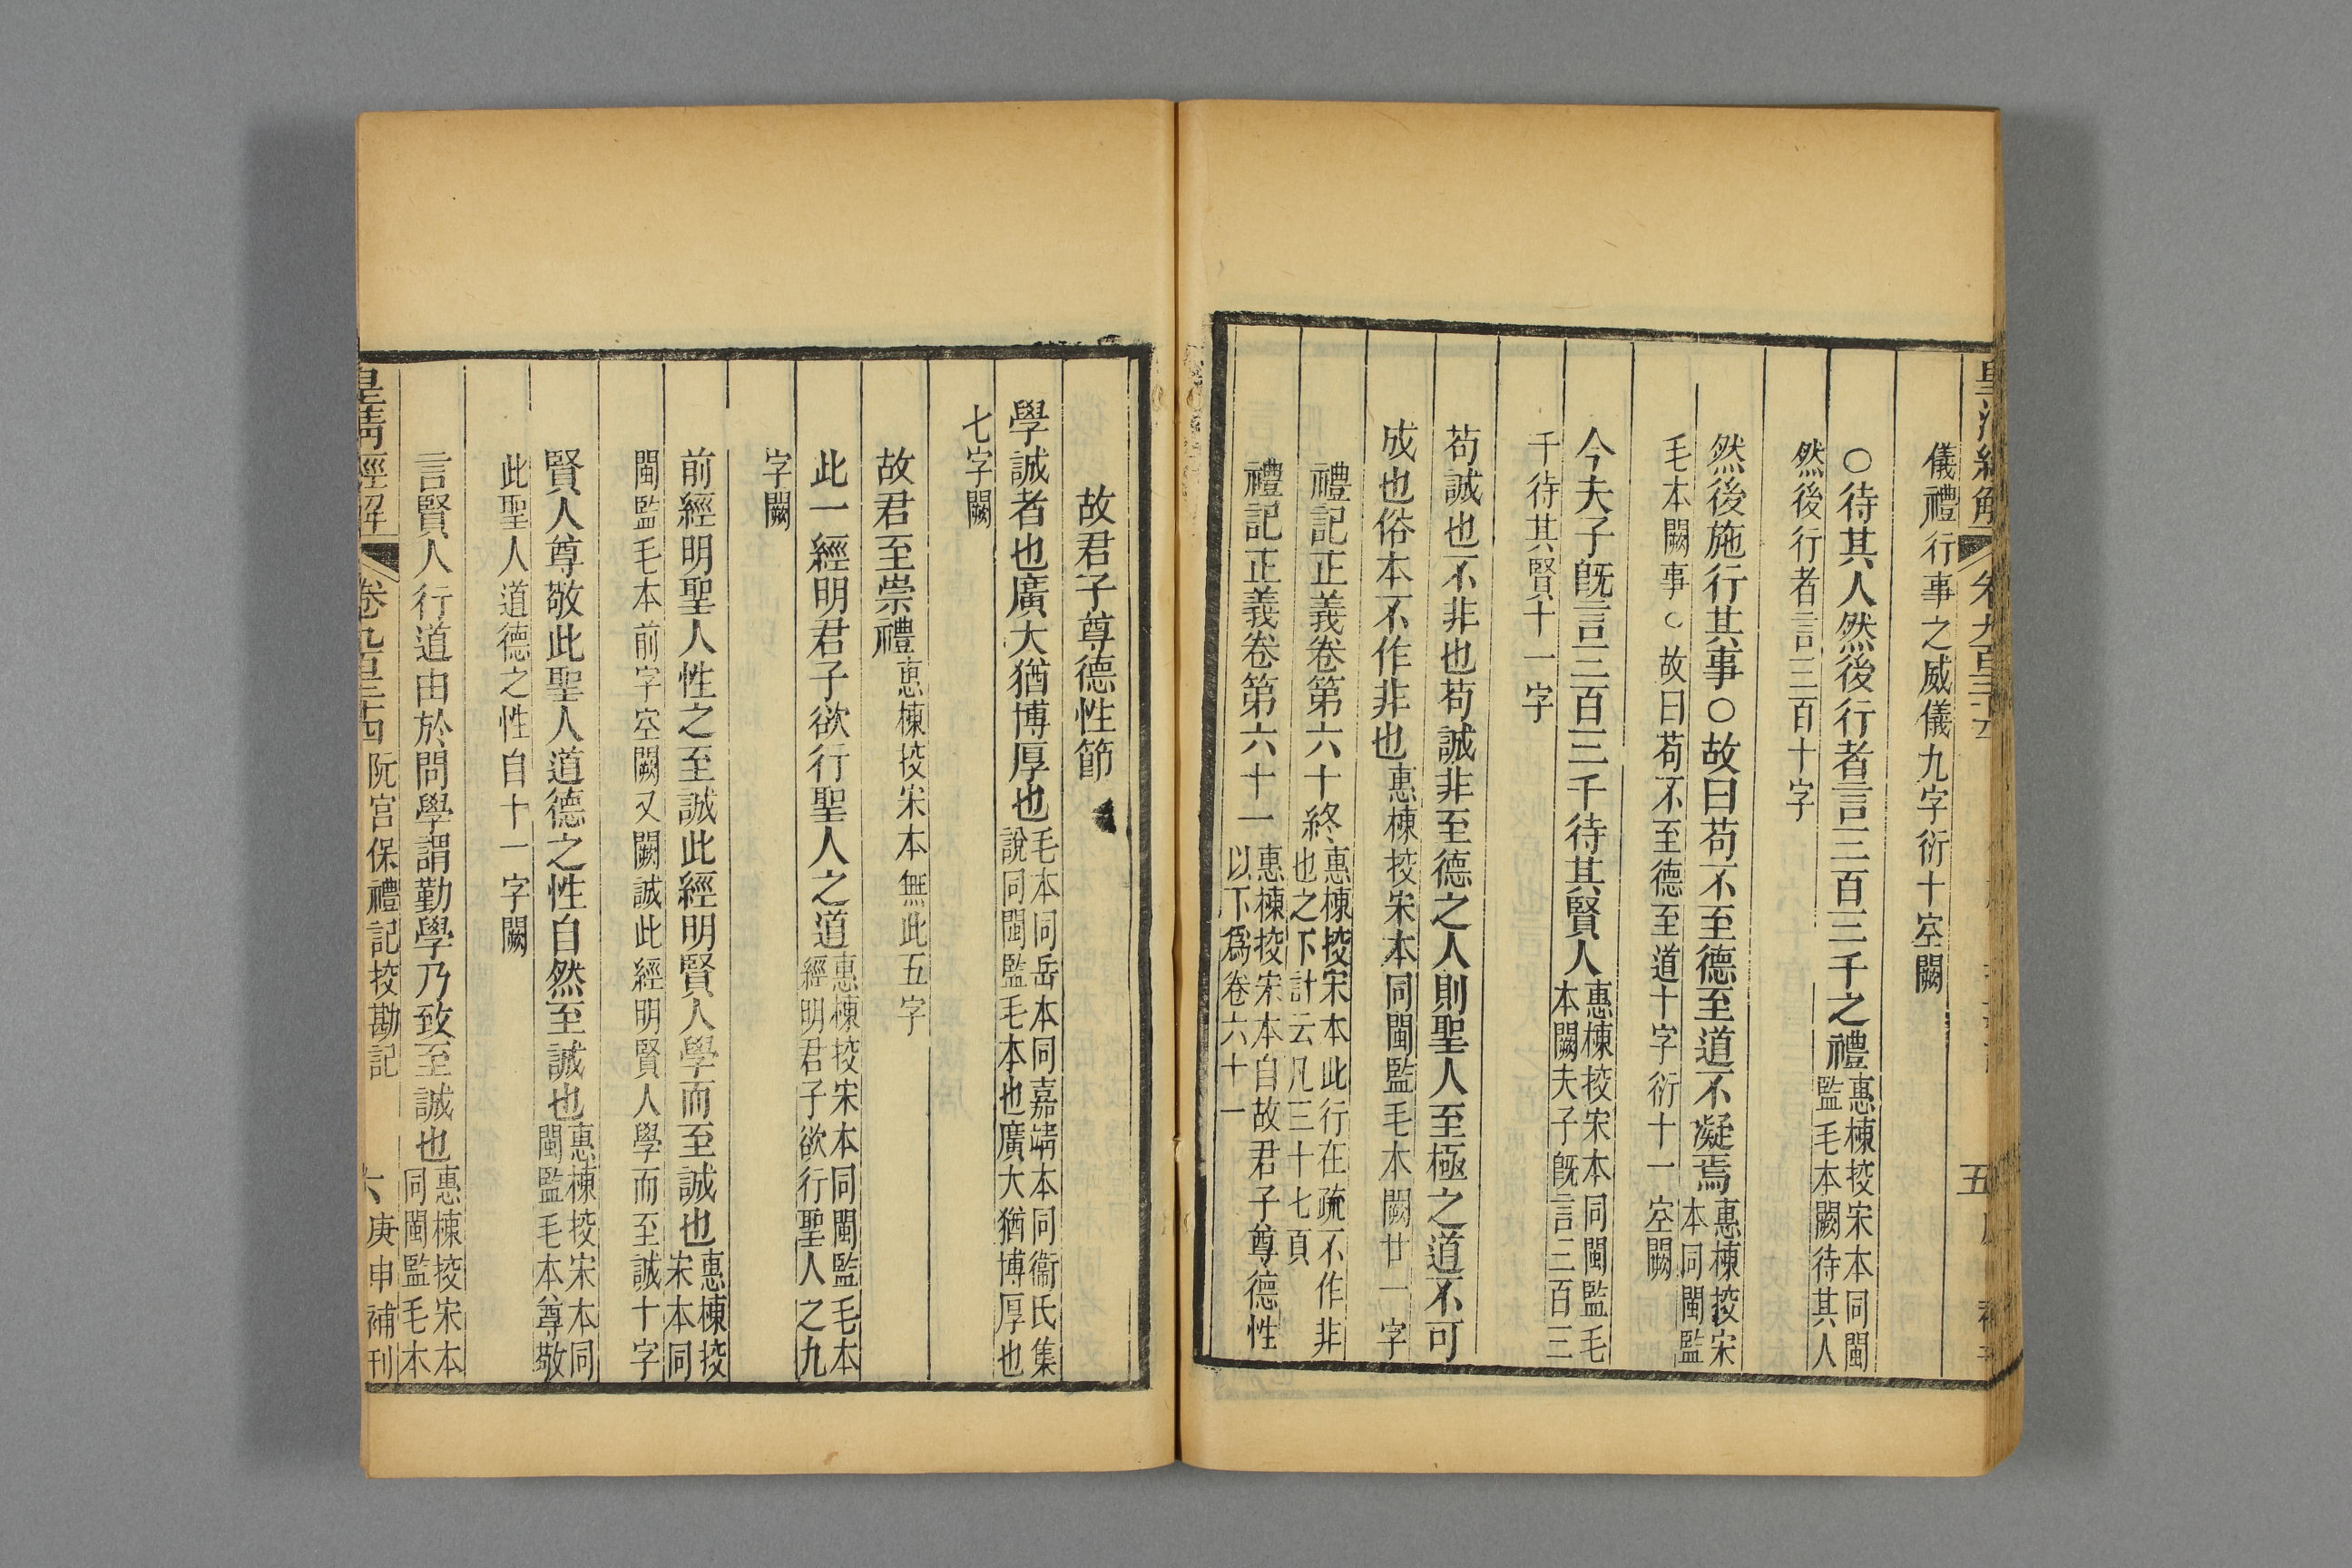 儀禮行事之威儀九字衍十空闕
○待其人然後行者言三百三千之禮惠棟挍宋本同閩監毛本闕待其人
然後行者言三百十字
然後施行其事○故曰苟不至德至道不凝焉惠棟挍宋本同閩監
毛本闕事○故曰苟不至德至道十字衍十一空闕
今夫子旣言三百三千待其賢人惠棟挍宋本同閩監毛本闕夫子旣言三百三
千待其賢十一字
苟誠也不非也苟誠非至德之人則聖人至極之道不可
成也俗本不作非也惠棟挍宋本同閩監毛本闕廿一字
禮記正義卷第六十終惠棟挍宋本此行在疏不作非也之下計云凡三十七頁
禮記正義卷第六十一惠棟挍宋本自故君子尊德性以下爲卷六十一
故君子尊德性節
學誠者也廣大猶博厚也毛本同岳本同嘉靖本同衞氏集說同閩監毛本也廣大猶博厚也
七字闕
故君至崇禮惠棟挍宋本無此五字
此一經明君子欲行聖人之道惠棟挍宋本同閩監毛本經明君子欲行聖人之九
字闕
前經明聖人性之至誠此經明賢人學而至誠也惠棟挍宋本同
閩監毛本前字空闕又闕誠此經明賢人學而至誠十字
賢人尊敬此聖人道德之性自然至誠也惠棟挍宋本同閩監毛本尊敬
此聖人道德之性自十一字闕
言賢人行道由於問學謂勤學乃致至誠也惠棟挍宋本同閩監毛本
皇清經解 卷九百十四 阮宮保禮記挍勘記 六 庚申補刊